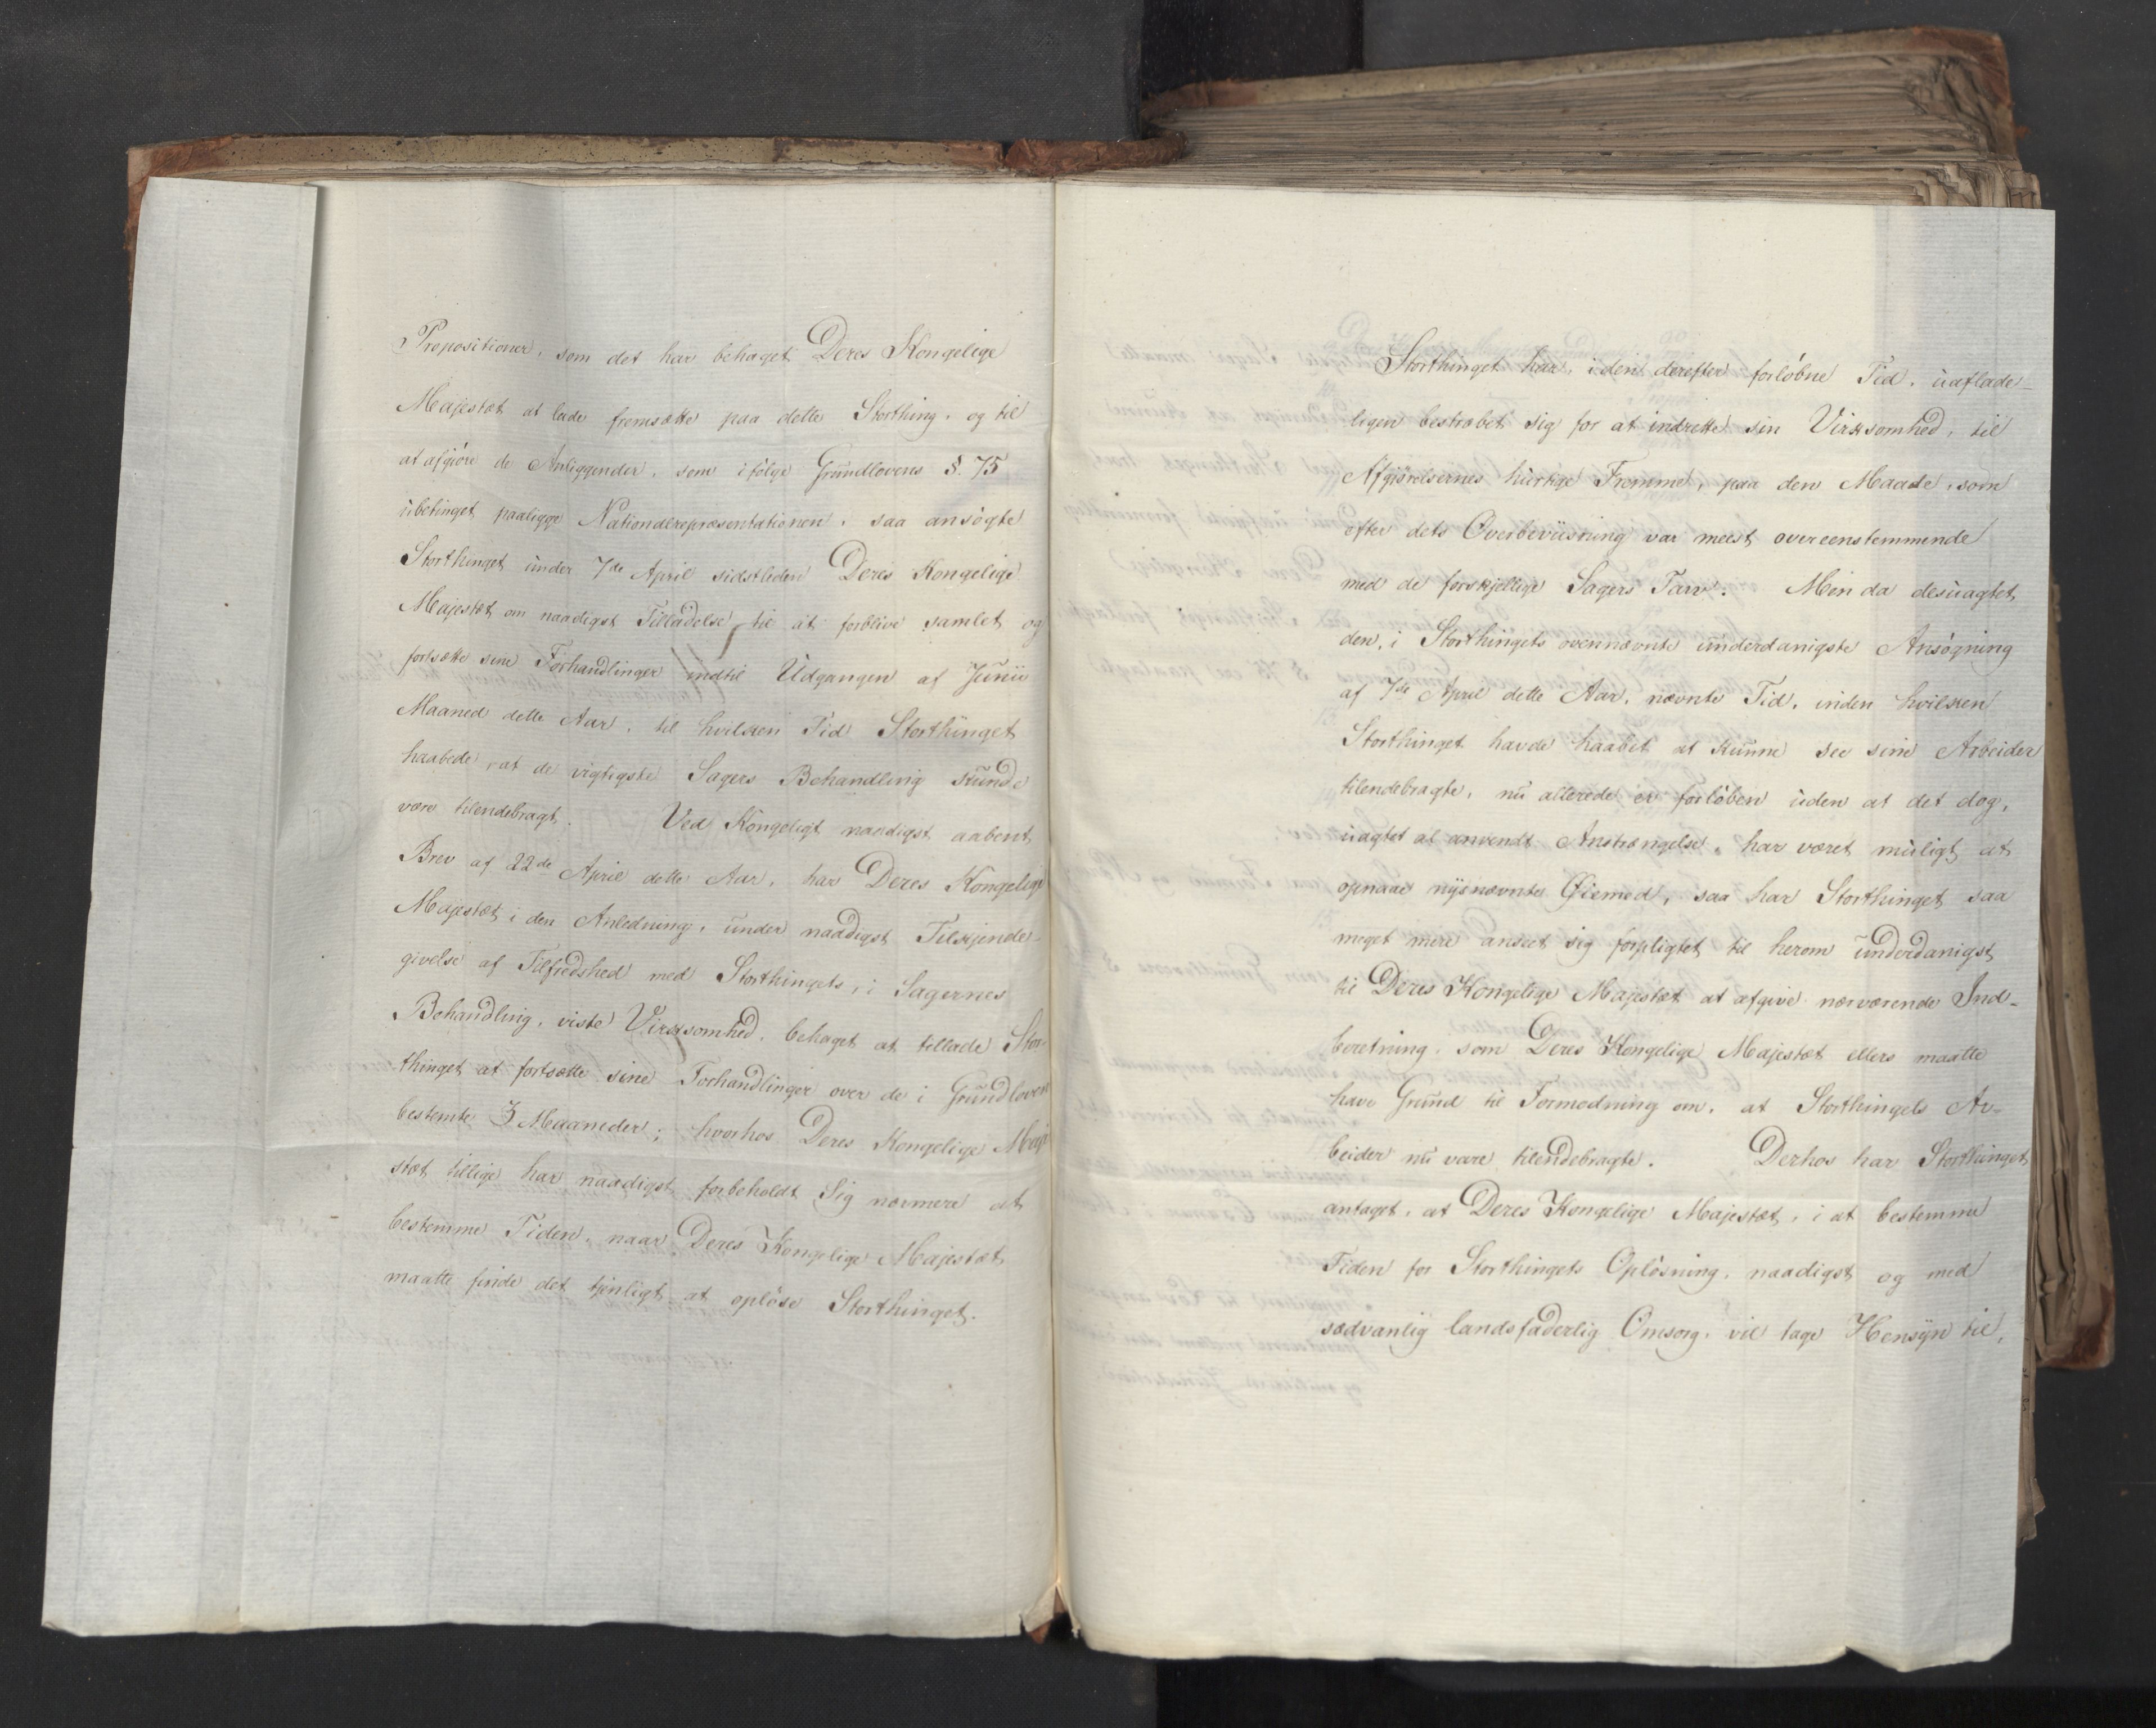 Propositioner, som det har behaget Deres Kongelige
Majestæt at lade fremsætte paa dette Storthing, og til
at afgjøre de Anliggender, som ifølge Grundlovens §. 75
ubetinget paaligge Nationalrepræsentationen, saa ansøgte
Storthinget under 7de April sidstleden Deres Kongelige
Majestæt om naadigst Tilladelse til at forblive samlet og
fortsætte sine Forhandlinger indtil Udgangen af Junii
Maaned dette Aar, til hvilken Tid Storthinget
haabede, at de vigtigste Sagers Behandling kunde
være tilendebragt. Ved Kongeligt naadigst aabent
Brev af 22de April dette Aar, har Deres Kongelige
Majestæt i den Anledning, under naadigst Tilkjende-
givelse af Tilfredshed med Storthingets, i Sagernes
Behandling, viste Virksomhed, behaget at tillade Stor-
thinget at fortsætte sine Forhandlinger over de i Grundloven
bestemte 3 Maaneder; hvorhos Deres Kongelige Maje
stæt tillige har naadigst forbeholdt Sig nærmere at
bestemme Tiden, naar Deres Kongelige Majestæt
maatte finde det tjenligt at opløse Storthinget.
Storthinget har, i den derefter forløbne Tid, uaflade-
ligen bestræbet sig for at indrette sin Virksomhed, til
Afgjørelsernes hurtige Fremme, paa den Maade, som
efter dets Overbeviisning var meest overeensstemmende
med de forskjellige Sagers Tarv. Men da desuagtet
den, i Storthingets ovennævnte underdanigste Ansøgning
af 7de April dette Aar, nævnte Tid, inden hvilken
Storthinget havde haabet at kunne see sine Arbeider
tilendebragte, nu allerede er forløben uden at det dog,
uagtet al anvendt Anstrængelse, har været muligt at
opnaae nysnævnte Øiemed, saa har Storthinget saa
meget mere anseet sig forpligtet til herom underdanigst
til Deres Kongelige Majestæt at afgive nærværende Ind-
beretning, som Deres Kongelige Majestæt ellers maatte
have Grund til Formodning om, at Storthingets Ar-
beider nu vare tilendebragte. Derhos har Storthinget
antaget, at Deres Kongelige Majestæt, i at bestemme
Tiden for Storthingets Opløsning, naadigst og med
sædvanlig landsfaderlig Omsorg, vil tage Hensyn til,